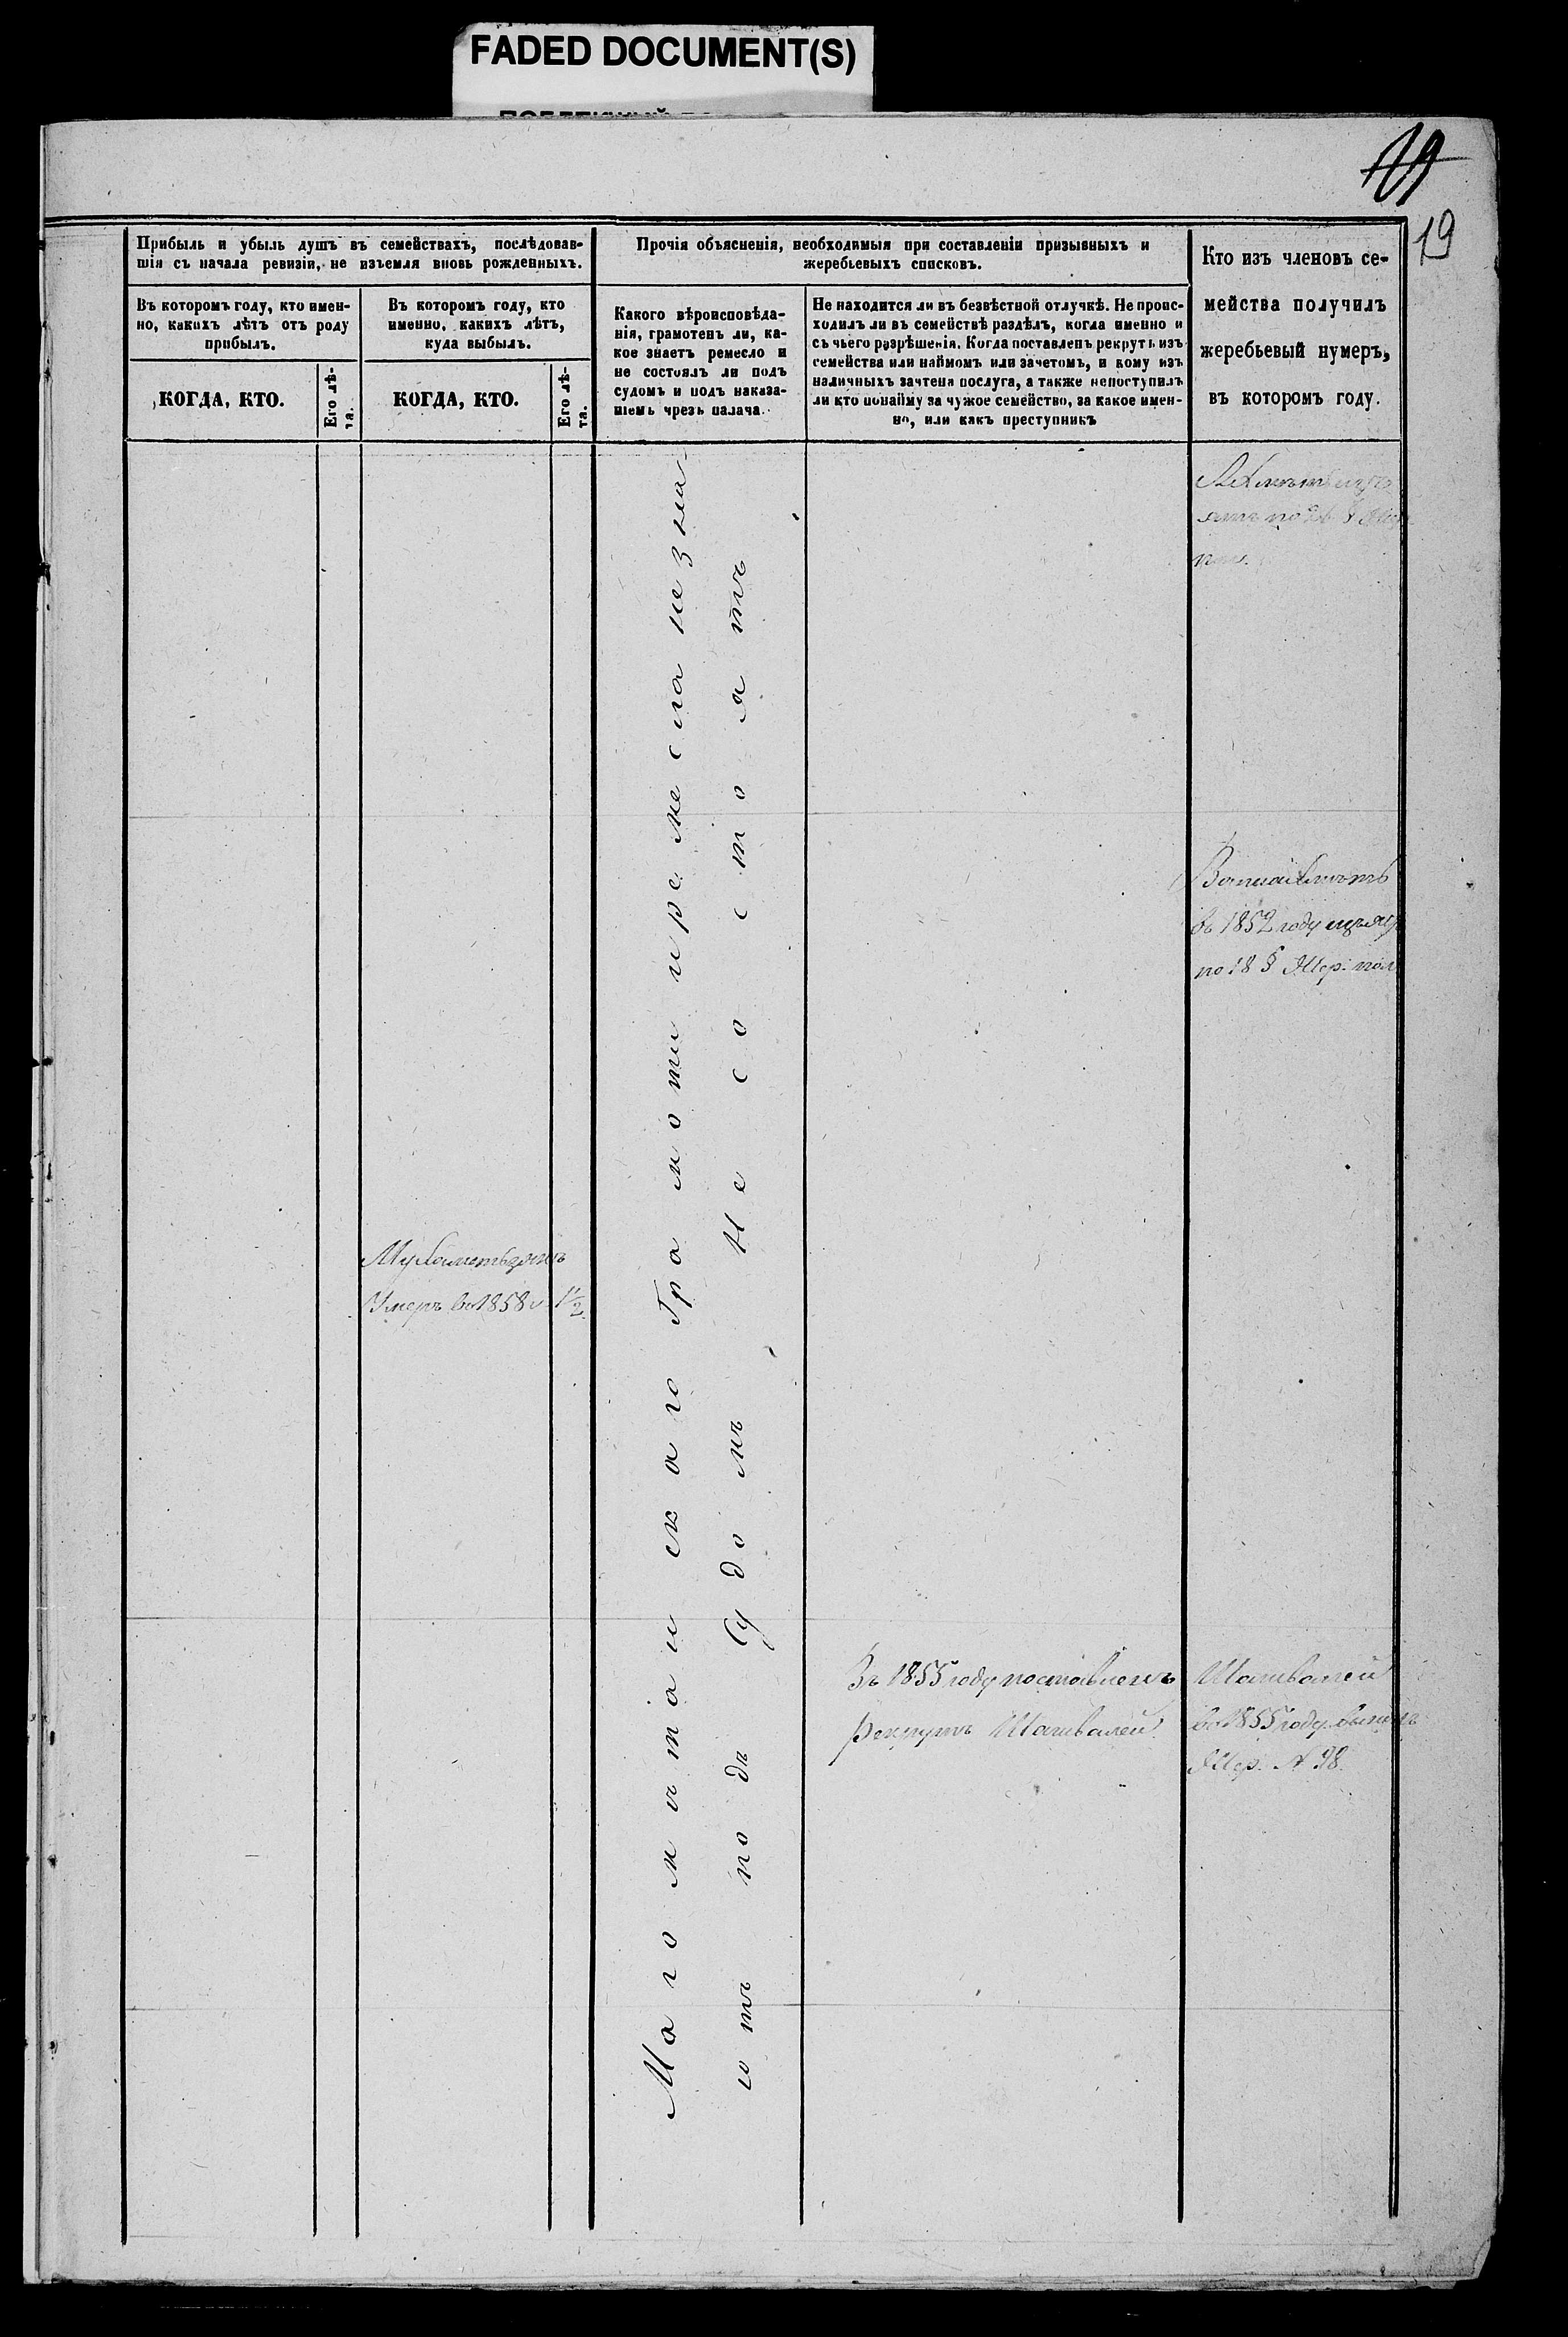 FADED DOCUMENT(S)
19
Прибыль и убыль душъ въ семействахъ, послѣдовав-
шія съ начала ревизіи, не изъемля вновь рожденныхъ.
Въ которомъ году, кто имен-
но, какихъ лѣтъ отъ роду
прибылъ.
КОГДА, КТО.
Его лѣ-
та.
Въ которомъ году, кто
именно, какихъ лѣтъ,
куда выбылъ.
КОГДА, КТО.
Его лѣ-
та.
Прочія объясненія, необходимыя при составленіи призывныхъ и
жеребьевыхъ списковъ.
Какого вѣроисповѣда-
нія, грамотенъ ли, ка-
кое знаетъ ремесло и
не состоялъ ли подъ
судомъ и подъ наказа-
ніемъ чрезъ палача.
Не находится ли въ безвѣстной отлучкѣ. Не проис-
ходилъ ли въ семействѣ раздѣлъ, когда именно и
съ чьего разрѣшенія. Когда поставленъ рекрутъ изъ
семейства или наймомъ или зачетомъ, и кому изъ
наличныхъ зачтена послуга, а также непоступилъ
ли кто понайму за чужое семейство, за какое имен-
но, или какъ преступникъ
Кто изъ членовъ се-
мейства получилъ
жеребьевый нумеръ,
въ которомъ году.
въ 1852 году
по 18 § Жер: пол
Мухаметьзянъ
Умеръ въ 1858 1½
Магометанскаго Грамоти и ремесла незна-
ютъ подъ Судомъ Не состоятъ
Въ 1855 году поставленъ
рекрутъ Шагивалей
Шагивалей
въ 1855 году вынулъ
Жер. N 98.